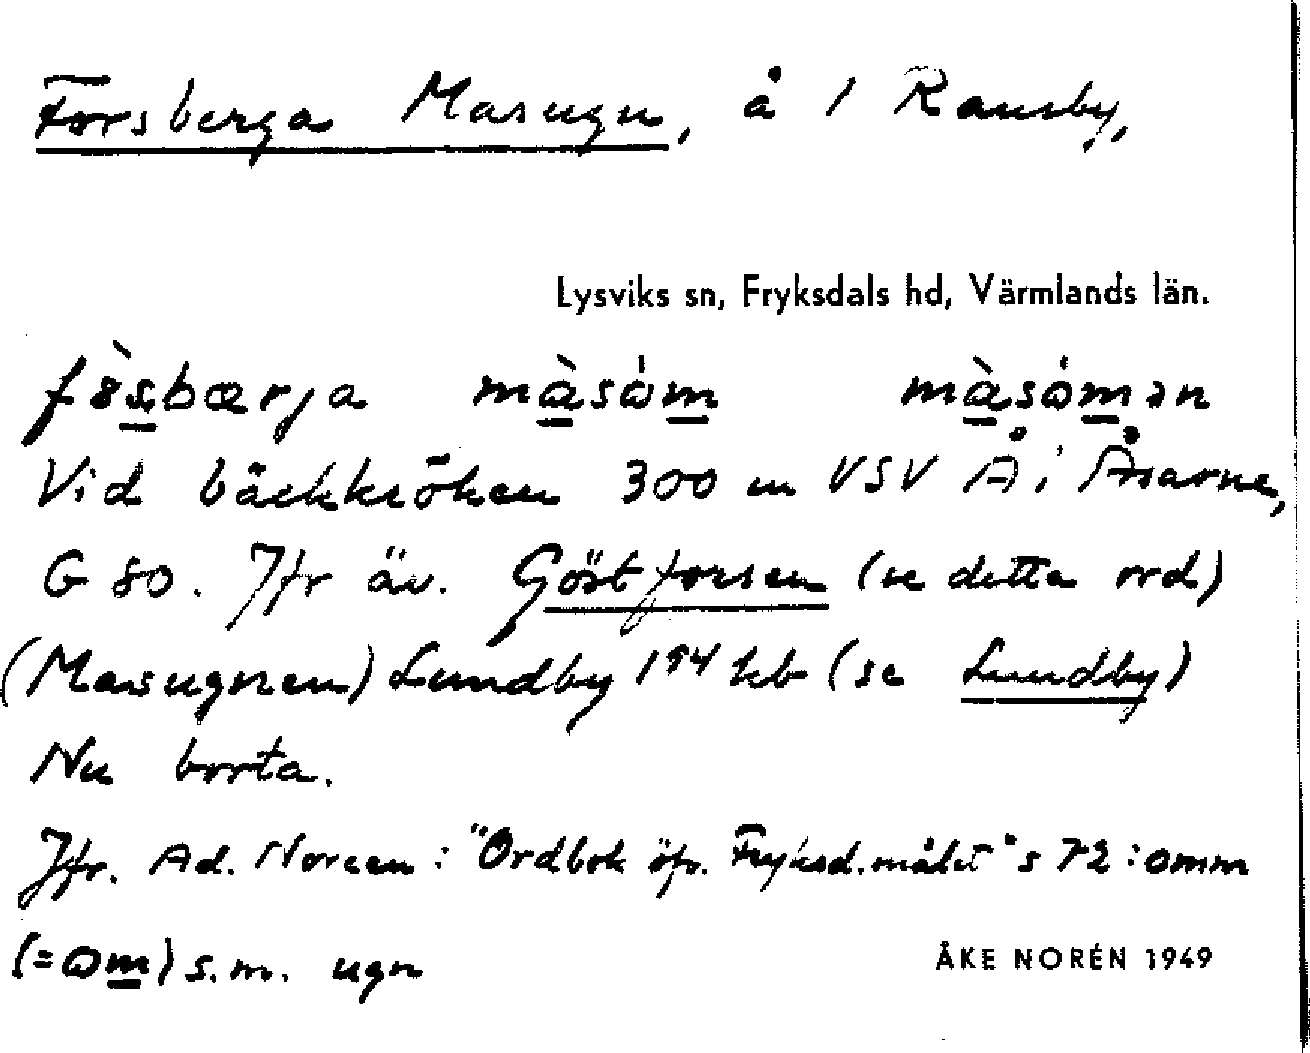 Forsberga Masugn, å 1 Ransby,
Lysviks sn, Fryksdals hd, Värmlands län.
Vid bäckkröken 300 m VSV Å i Åsarne,
G 80. Jfr äv. Göstforsen (se detta ord)
(Masugnen) Lundby 194 kb (se Lundby)
Nu borta.
Jfr. Ad. Noreen: "Ordbok öfr. Fryksd.målet" s 72: omm
(=om) s.m. ugn
ÅKE NORÉN 1949